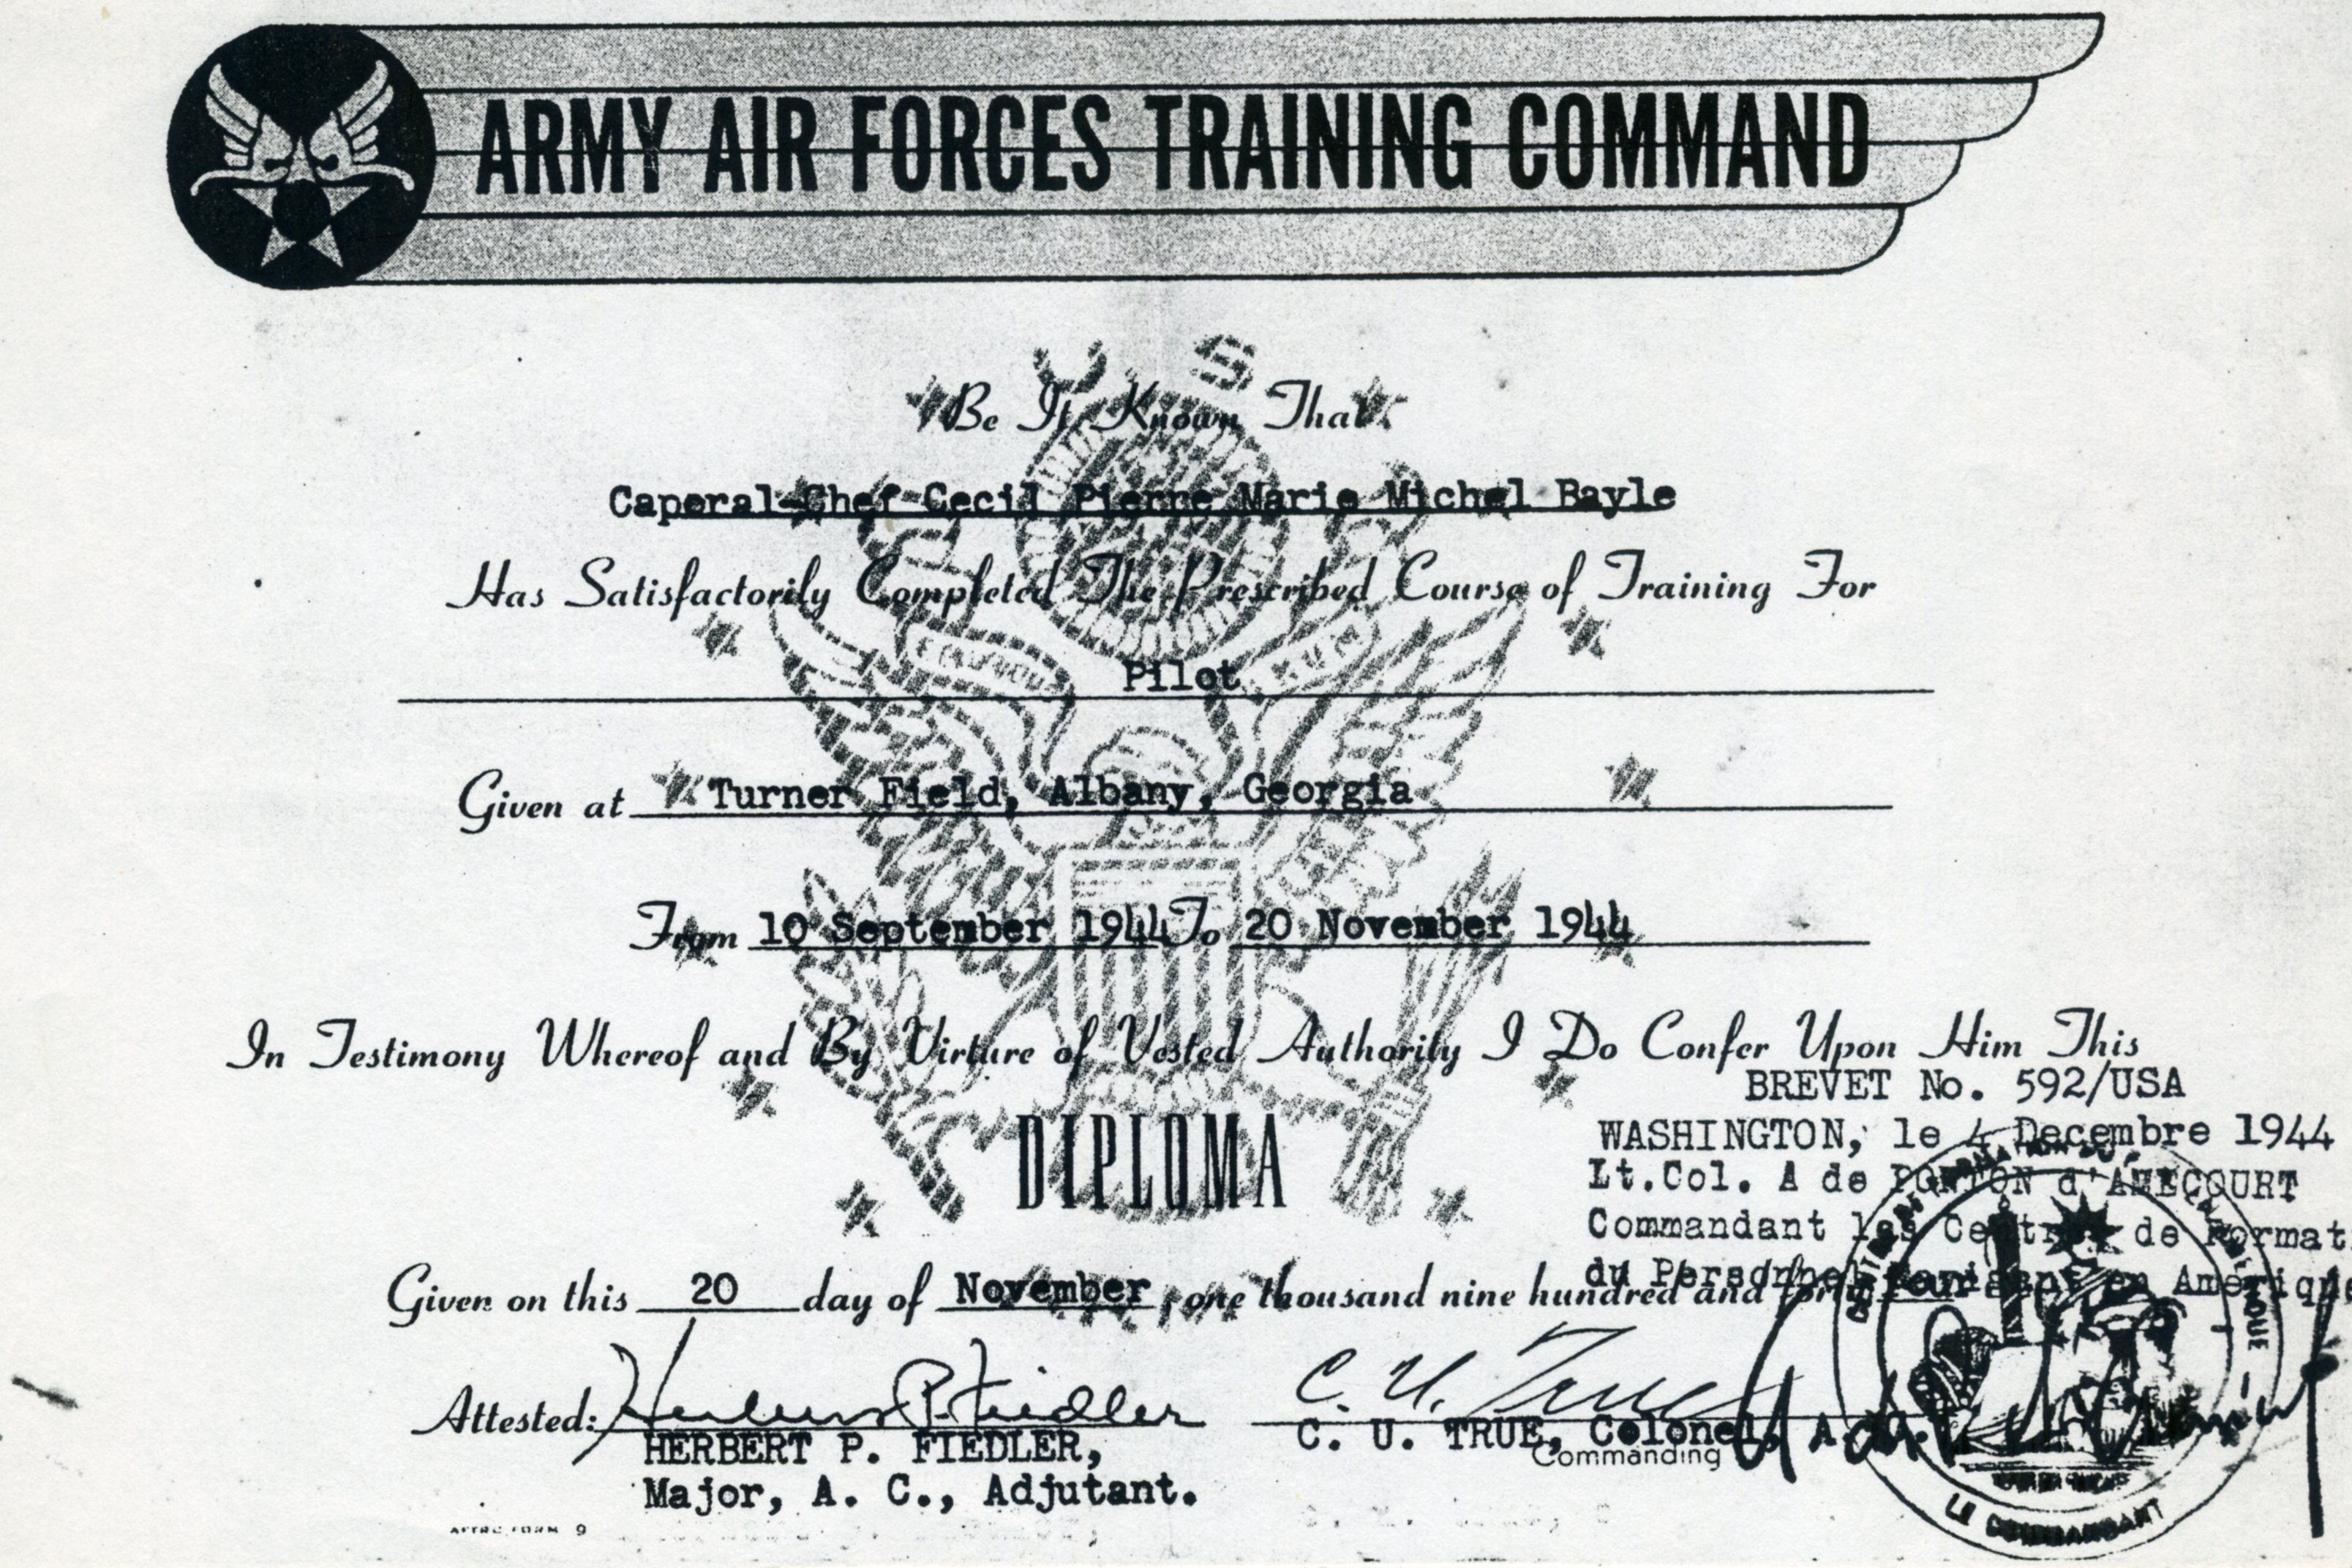 ARMY AIR FORCES TRAINING COMMAND
U S
Be It Known That
Caporal-Chef Cecil Pierre Marie Michel Bayle
Has Satisfactorily Completed The Prescribed Course of Training For
Pilot
Given at Turner Field, Albany, Georgia
From 10 September 1944 To 20 November 1944
In Testimony Whereof and By Virture of Vested Authority I Do Confer Upon Him This
BREVET No. 592/USA
DIPLOMA
WASHINGTON, le 4 Decembre 1944
Lt.Col. A de PONTON d'AMECOURT
Commandant les Centres de Format
du Personnel Navigant en Amerique
Given on this 20 day of November, one thousand nine hundred and forty four
Attested: Herbert P. Fiedler
C. U. True
HERBERT P. FIEDLER,
Major, A. C., Adjutant.
C. U. TRUE, Colonel, A. C.
Commanding
LE COMMANDANT
AFTRC FORM 9